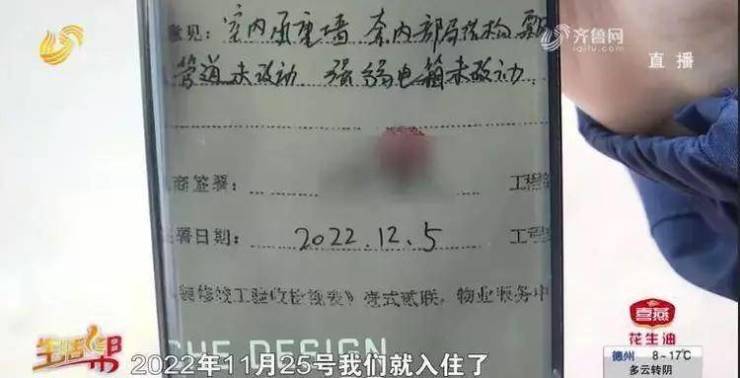 齐鲁网
iqilu.com
直播
意见：室内承重墙 套内部局结构 飘
管道未改动 强弱电箱未改动.
商签署：
工程
署日期：2022.12.5
工
装修竣工验收检视表》壹式贰联，物业服务中
THE DESIGN
2022年11月25号我们就入住了
生活帮
喜燕
花生油
德州 8-17℃
多云转阴